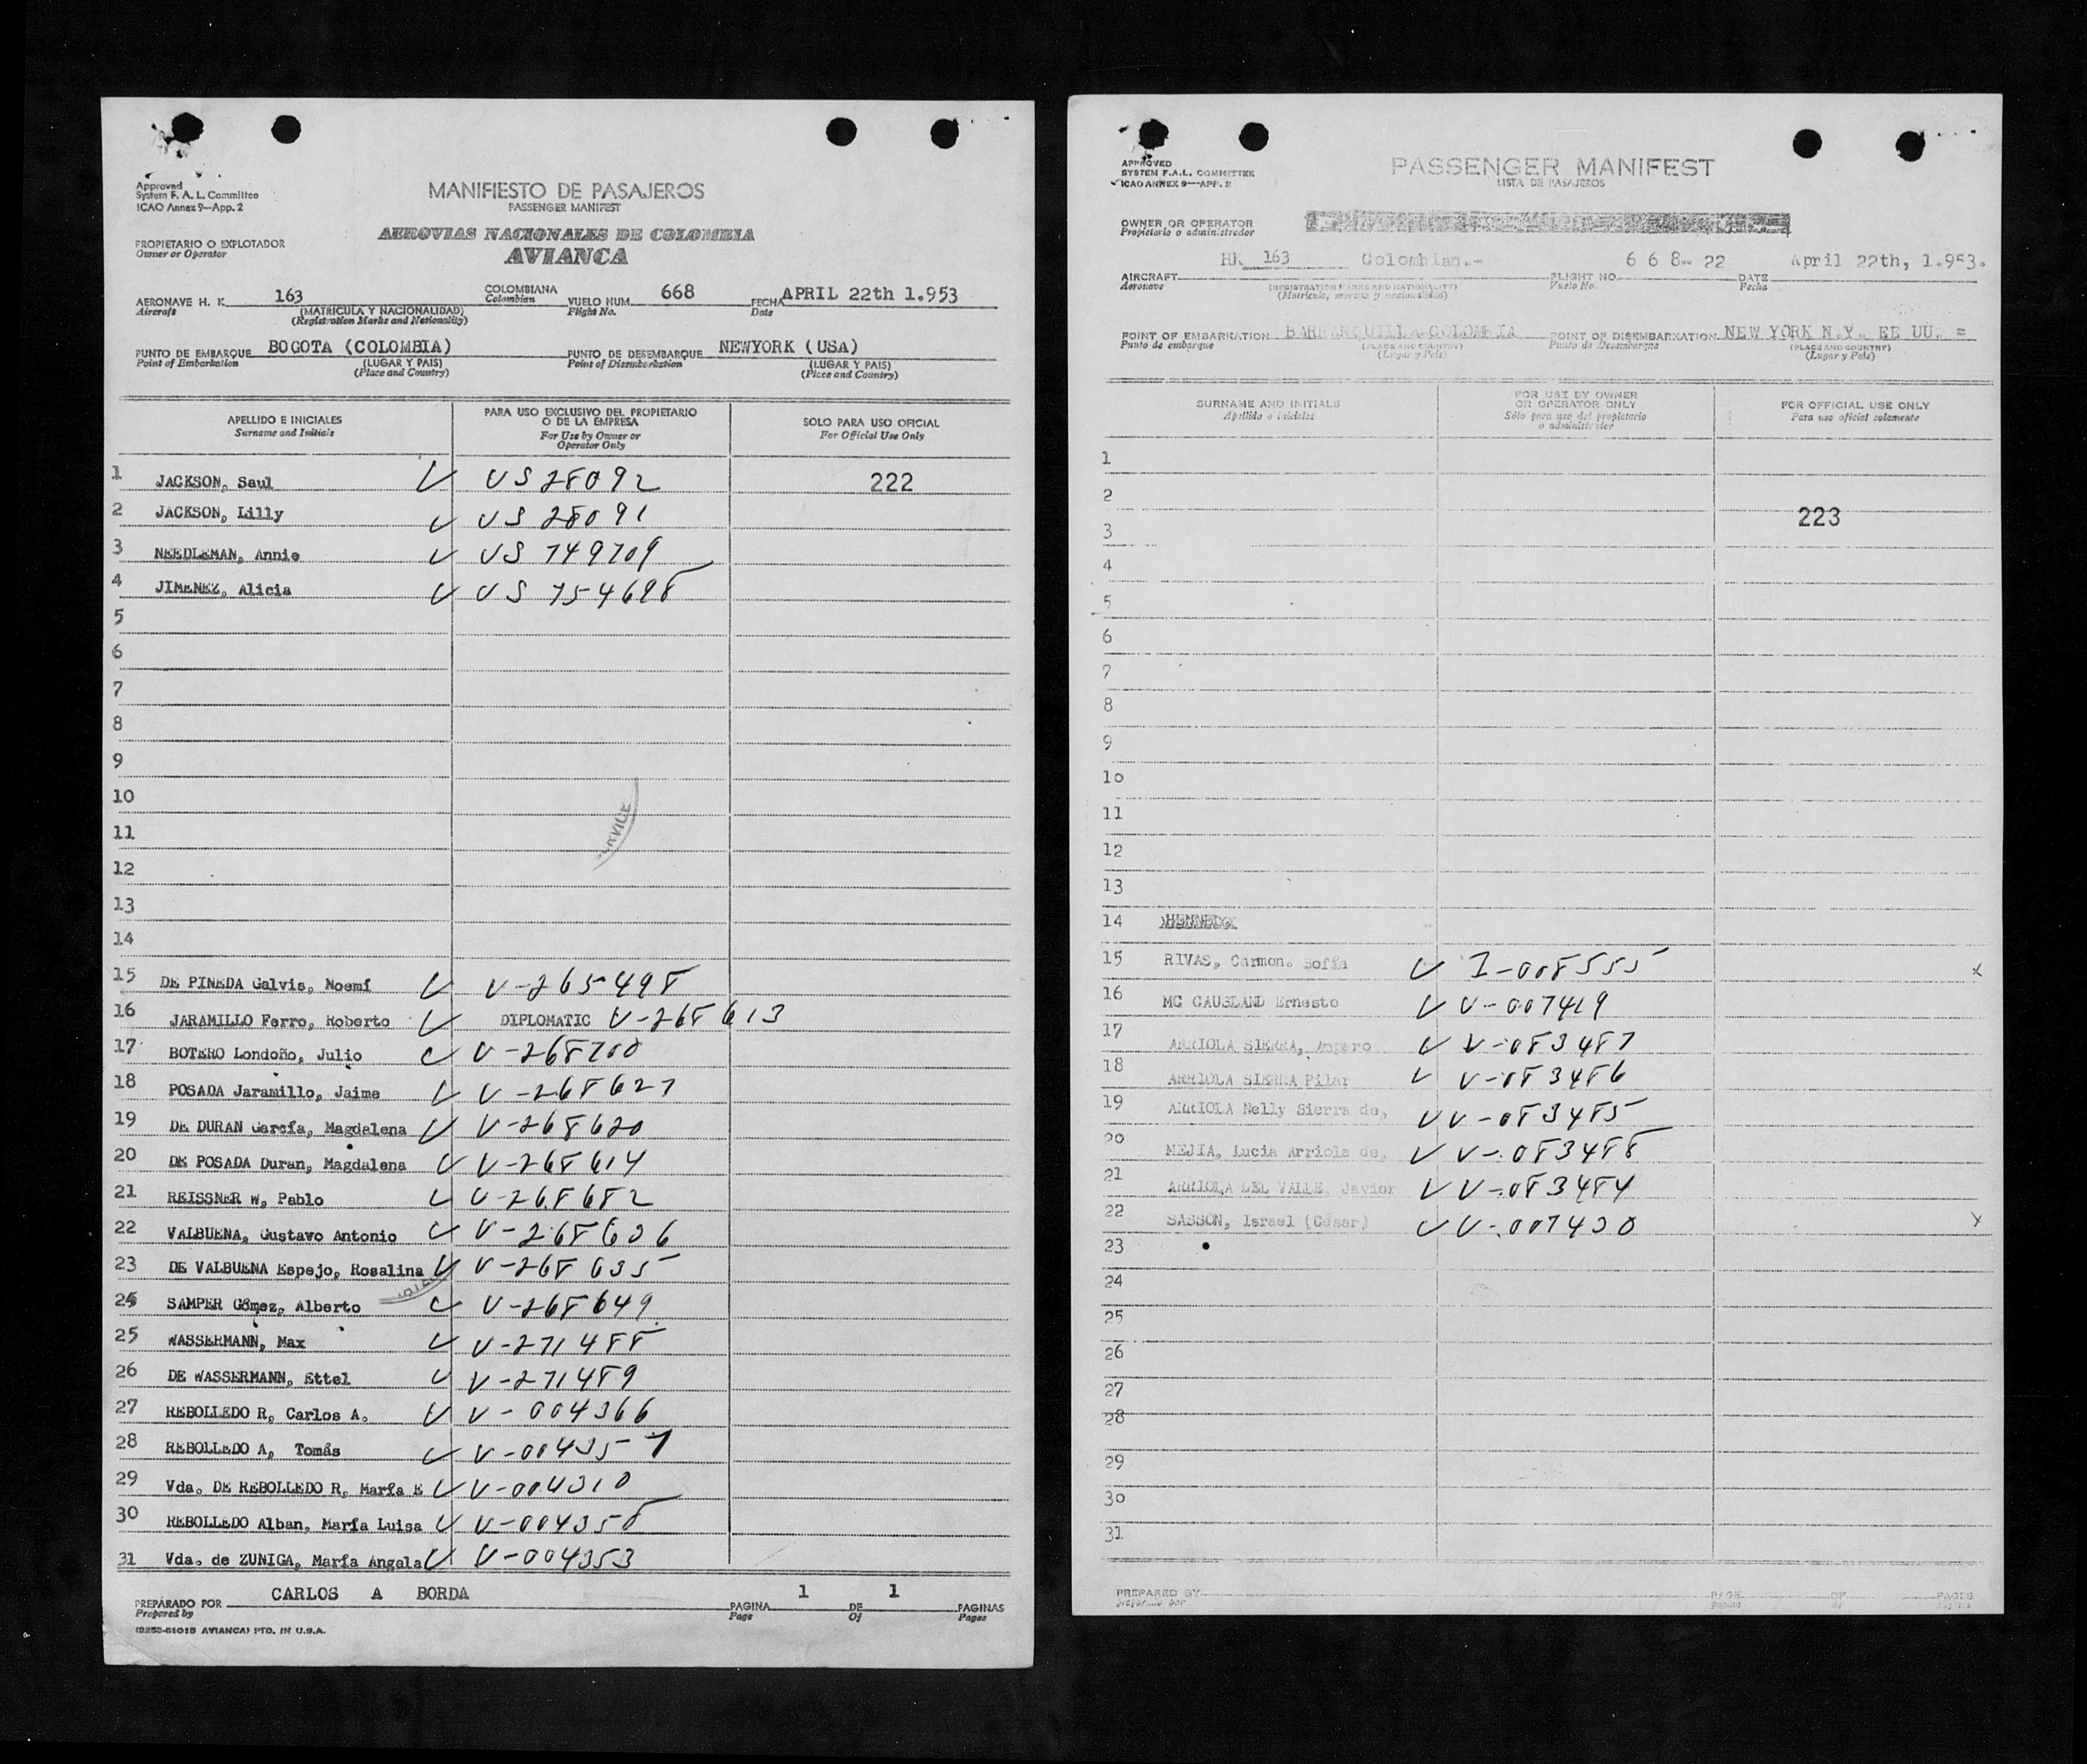 Approved
System F. A. L. Committee
ICAO Annex 9—App. 2
MANIFIESTO DE PASAJEROS
PASSENGER MANIFEST
AEROVIAS NACIONALES DE COLOMBIA
AVIANCA
PROPIETARIO O EXPLOTADOR
Owner or Operator
AERONAVE H. K. 163 COLOMBIANA VUELO NUM. 668 FECHA APRIL 22th 1.953
Aircraft (MATRICULA Y NACIONALIDAD) Colombian Flight No. Date
(Registration Marks and Nationality)
PUNTO DE EMBARQUE BOGOTA (COLOMBIA) PUNTO DE DESEMBARQUE NEWYORK (USA)
Point of Embarkation (LUGAR Y PAIS) Point of Disembarkation (LUGAR Y PAIS)
(Place and Country) (Place and Country)
APELLIDO E INICIALES PARA USO EXCLUSIVO DEL PROPIETARIO O DE LA EMPRESA SOLO PARA USO OFICIAL
Surname and Initials For Use by Owner or Operator Only For Official Use Only
1 JACKSON, Saul V US 28092 222
2 JACKSON, Lilly V US 28091
3 NEEDLEMAN, Annie V US 749709
4 JIMENEZ, Alicia V US 754698
5
6
7
8
9
10
11
12
13
14
15 DE PINEDA Galvis, Noemí V V-265498
16 JARAMILLO Ferro, Roberto V DIPLOMATIC V-268613
17 BOTERO Londoño, Julio V V-268700
18 POSADA Jaramillo, Jaime V V-268627
19 DE DURAN García, Magdalena V V-268620
20 DE POSADA Duran, Magdalena V V-268614
21 REISSNER W, Pablo V V-268682
22 VALBUENA, Gustavo Antonio V V-268636
23 DE VALBUENA Espejo, Rosalina V V-268635
24 SAMPER Gómez, Alberto V V-268649
25 WASSERMANN, Max V V-271488
26 DE WASSERMANN, Ettel V V-271489
27 REBOLLEDO R, Carlos A. V V-004366
28 REBOLLEDO A, Tomás V V-004357
29 Vda. DE REBOLLEDO R, María E V V-004310
30 REBOLLEDO Alban, María Luisa V V-004358
31 Vda. de ZUNIGA, María Angala V V-004353
PREPARADO POR CARLOS A BORDA PAGINA 1 DE 1 PAGINAS
Prepared by Page Of Pages
(9253-6101B AVIANCA) PTD. IN U.S.A.
APPROVED
SYSTEM F.A.L. COMMITTEE
ICAO ANNEX 9—APP. 2
PASSENGER MANIFEST
LISTA DE PASAJEROS
OWNER OR OPERATOR
Propietario o administrador
HK 163 Colombian.- 6 6 8- 22 April 22th, 1.953.
AIRCRAFT FLIGHT NO. DATE
Aeronave (REGISTRATION MARKS AND NATIONALITY) Vuelo No. Fecha
(Matrícula, marcas y nacionalidad)
POINT OF EMBARKATION BARRANQUILLA-COLOMBIA POINT OF DISEMBARKATION NEW YORK N.Y. EE UU. =
Punto de embarque (PLACE AND COUNTRY) Punto de Desembarque (PLACE AND COUNTRY)
(Lugar y País) (Lugar y País)
SURNAME AND INITIALS FOR USE BY OWNER OR OPERATOR ONLY FOR OFFICIAL USE ONLY
Apellido e iniciales Sólo para uso del propietario o administrador Para uso oficial solamente
1
2
223
3
4
5
6
7
8
9
10
11
12
13
14
15 RIVAS, Carmen. Sofía V I-008555 x
16 MC CAUSLAND Ernesto V V-007419
17 ARRIOLA SIERRA, Amparo V V-083487
18 ARRIOLA SIERRA Pilar V V-083486
19 ARRIOLA Nelly Sierra de, V V-083485
20 MEJIA, Lucia Arriola de, V V-083488
21 ARRIOLA DEL VALLE, Javier V V-083484
22 SASSON, Israel (César) V V-007430 x
23
24
25
26
27
28
29
30
31
PREPARED BY PAGE OF PAGES